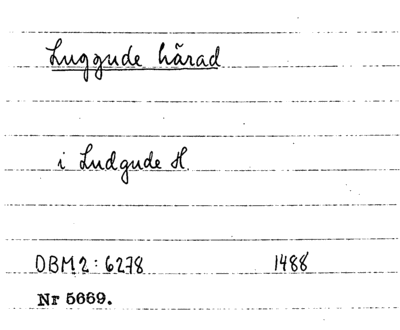 Luggude härad
i Ludgude H.
DBM 2:6278 1488
Nr 5669.